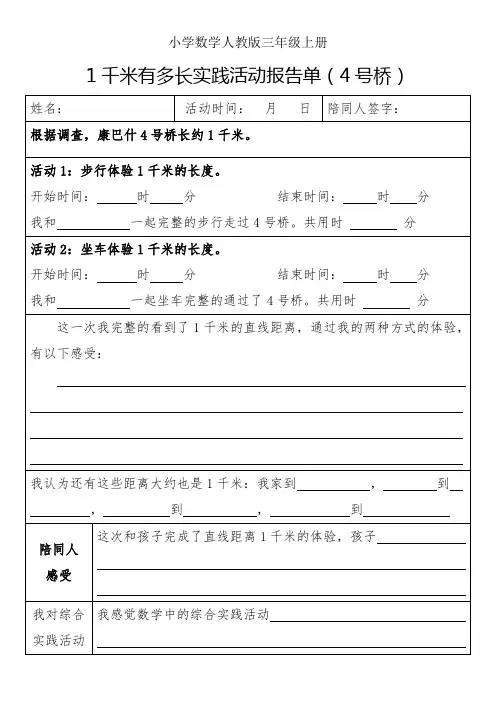 小学数学人教版三年级上册
1千米有多长实践活动报告单（4号桥）
姓名： 活动时间： 月 日 陪同人签字：
根据调查，康巴什4号桥长约1千米。
活动1：步行体验1千米的长度。
开始时间：____时____分 结束时间：____时____分
我和________一起完整的步行走过4号桥。共用时______分
活动2：坐车体验1千米的长度。
开始时间：____时____分 结束时间：____时____分
我和________一起坐车完整的通过了4号桥。共用时______分
这一次我完整的看到了1千米的直线距离，通过我的两种方式的体验，
有以下感受：
我认为还有这些距离大约也是1千米：我家到________，______到__
______，________到________，________到________
陪同人
感受
这次和孩子完成了直线距离1千米的体验，孩子________
我对综合
实践活动
我感觉数学中的综合实践活动________